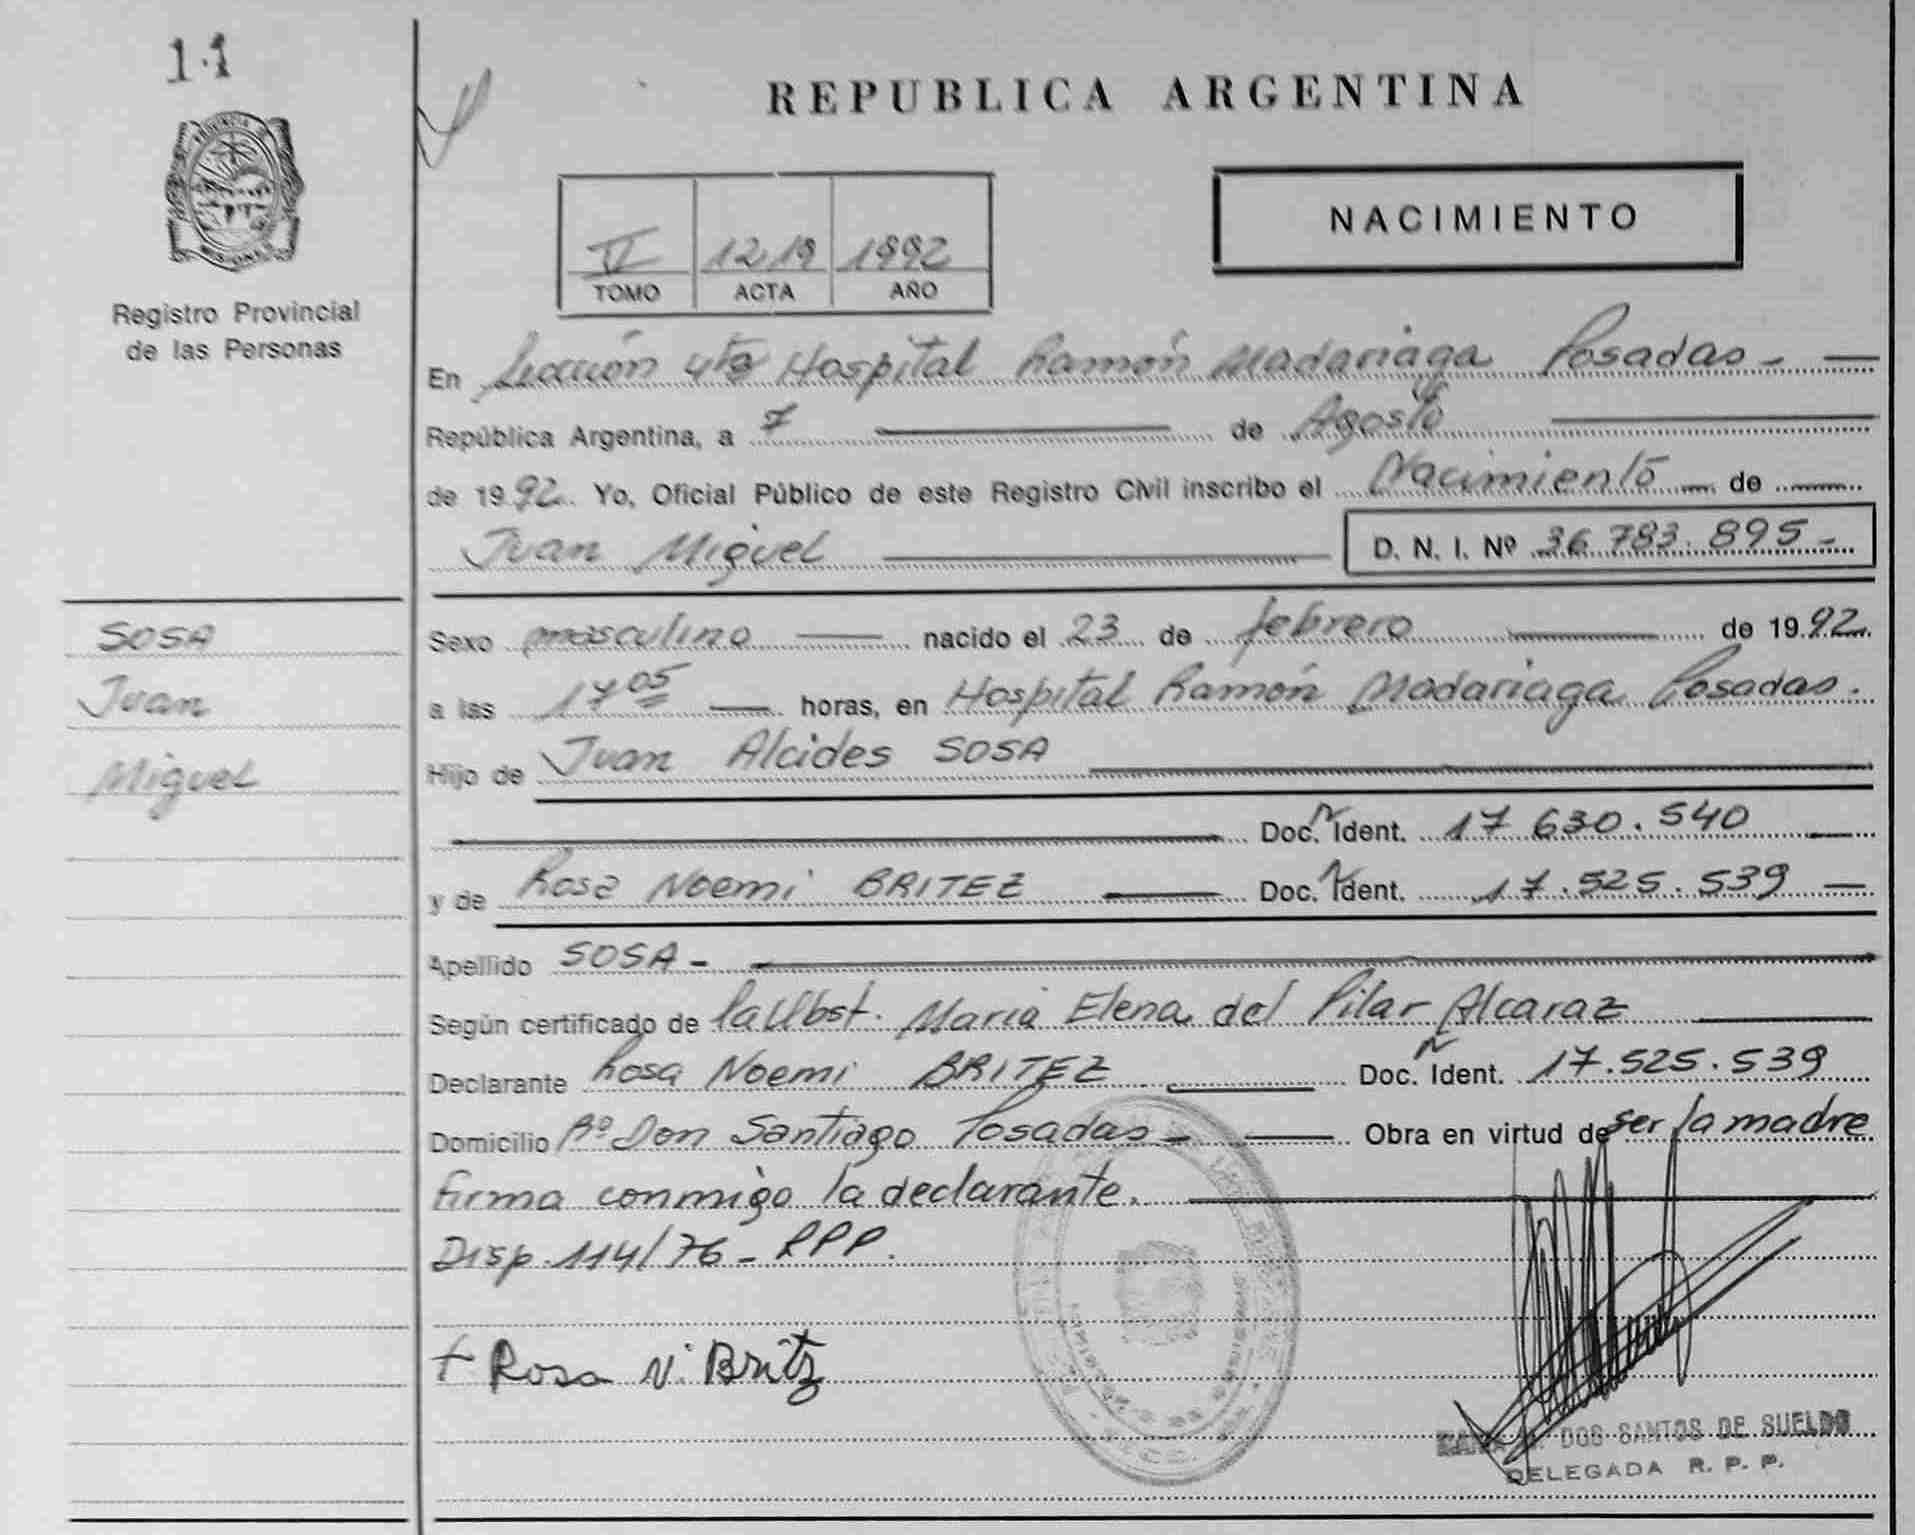 11
REPUBLICA ARGENTINA
NACIMIENTO
1219 1992
TOMO ACTA AÑO
Registro Provincial
de las Personas
En Sección 4ta Hospital Ramón Madariaga Posadas -
República Argentina, a 7 de Agosto
de 1992. Yo, Oficial Público de este Registro Civil inscribo el Nacimiento de
Juan Miguel D. N. I. Nº 36.783.895-
SOSA
Juan
Miguel
Sexo masculino nacido el 23 de febrero de 1992.
a las 17 05 horas, en Hospital Ramón Madariaga Posadas.
Hijo de Juan Alcides SOSA
Doc. Ident. 17 630.540
y de Rosa Noemi BRITEZ Doc. Ident. 17.525.539
Apellido SOSA -
Según certificado de la Obst. Maria Elena del Pilar Alcaraz
Declarante Rosa Noemi BRITEZ Doc. Ident. 17.525.539
Domicilio Bº Don Santiago Posadas - Obra en virtud de ser la madre
firma conmigo la declarante.
Disp. 114/76 - RPP.
+ Rosa N. Britz
DOS SANTOS DE SUELDO
DELEGADA R. P. P.